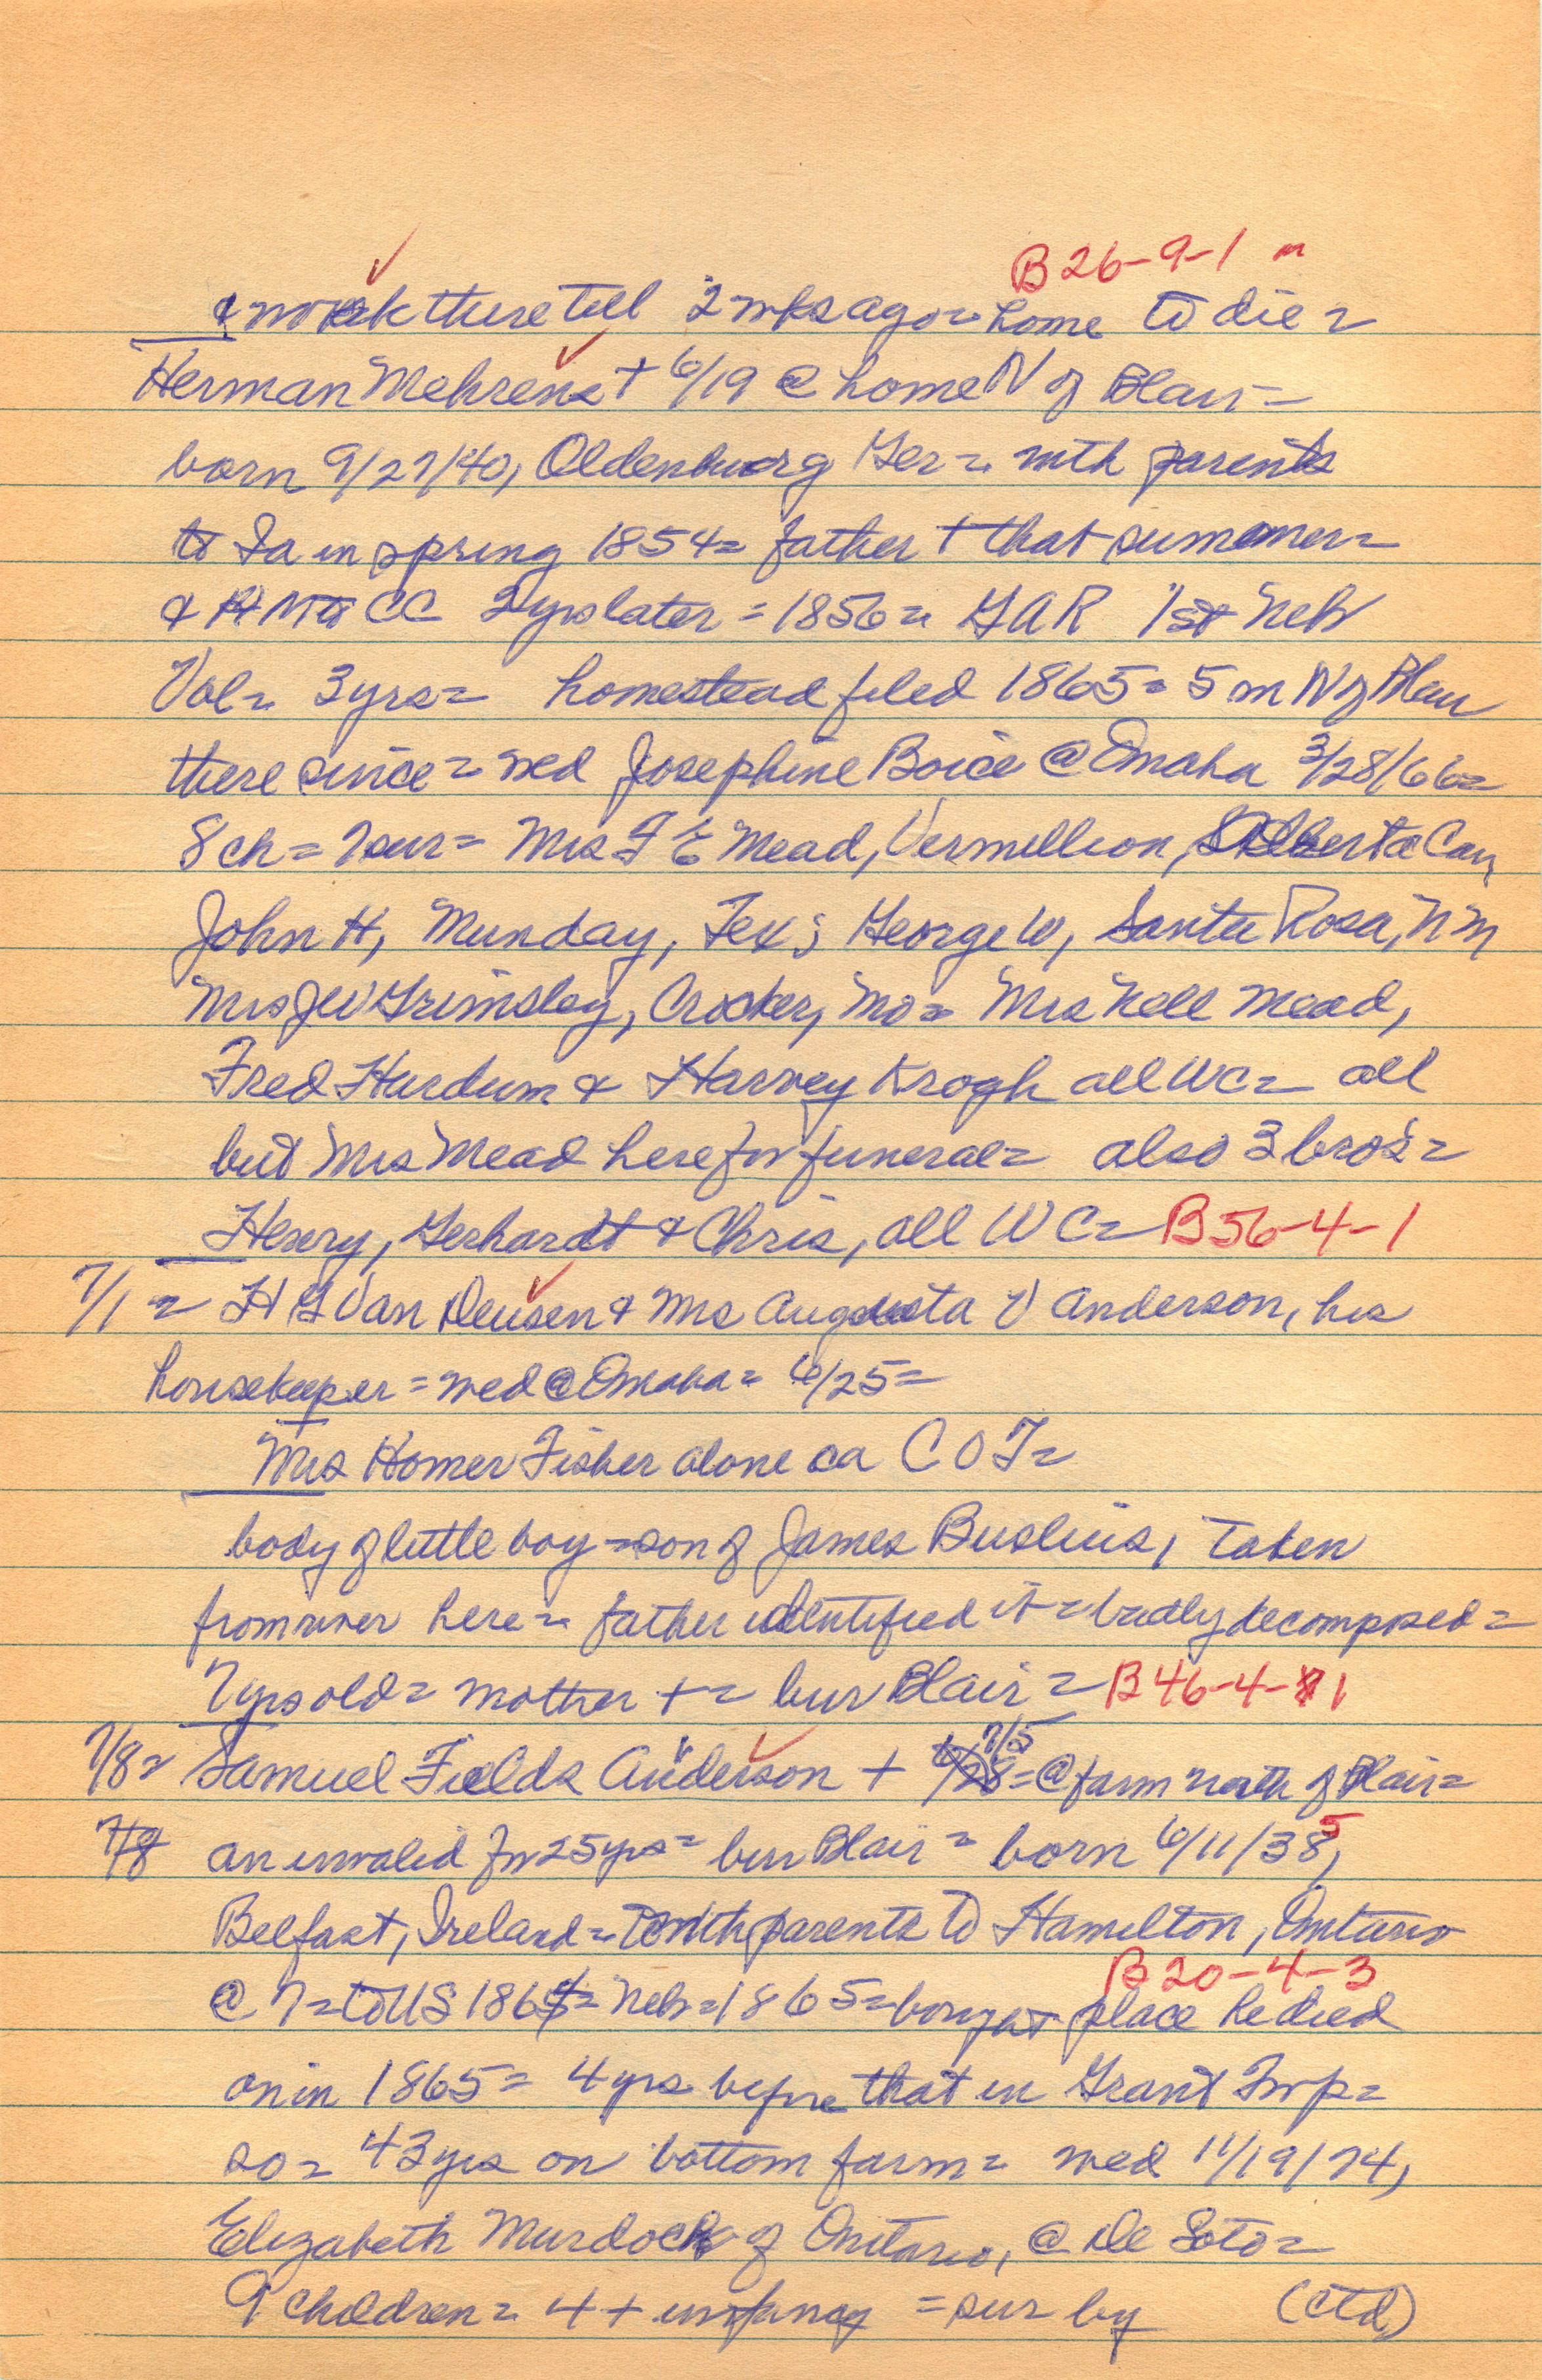 B 26-9-1
& work there till 2 wks ago = home to die =
Herman Mehrens + 6/19 @ home N of Blair =
born 9/27/40, Oldenburg Ger = with parents
to Ia in spring 1854 = father + that summer =
& to CC 2 yrs later = 1856 = GAR 1st Neb
Vol = 3 yrs = homestead filed 1865 = 5 m N of Blair
there since = wed Josephine Boice @ Omaha 3/28/66 =
8 ch = 7 sur = Mrs F E Mead, Vermillion, Alberta Can,
John H, Munday, Tex; George W, Santa Rosa, N M
Mrs J W Grimsley, Crocker, Mo = Mrs Nell Mead,
Fred Hardum & Harvey Krogh all WC = all
but Mrs Mead here for funeral = also 3 bros =
Henry, Gerhardt & Chris, all W C = B 56-4-1
7/1 = H G Van Deusen & Mrs Augusta V Anderson, his
housekeeper = wed @ Omaha = 6/25 =
Mrs Homer Fisher alone ca C O T =
body of little boy = son of James Buslius, taken
from river here = father identified it = badly decomposed =
7 yrs old = mother + = bur Blair = B 46-4-1
7/8 = Samuel Fields Anderson + 7/5 = @ farm north of Blair =
7/8 an invalid for 25 yrs = bur Blair = born 6/11/35,
Belfast, Ireland = with parents to Hamilton, Ontario
B 20-4-3
@ 7 = to US 1864 = Neb = 1865 = bought place he died
on in 1865 = 4 yrs before that in Grant Twp =
so = 43 yrs on bottom farm = wed 11/19/74,
Elizabeth Murdock of Ontario, @ De Soto =
9 children = 4 + infancy = sur by (ctd)